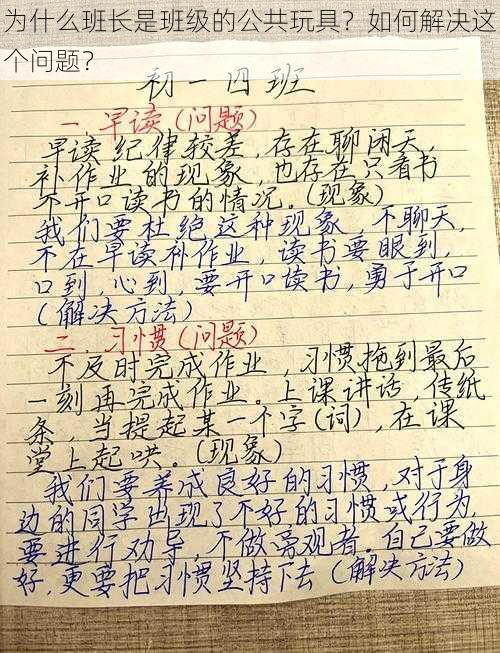 为什么班长是班级的公共玩具？如何解决这
个问题？
初一四班
一、早读（问题）
早读纪律较差，存在聊闲天，
补作业的现象，也存在只看书
不开口读书的情况。（现象）
我们要杜绝这种现象，不聊天，
不在早读补作业，读书要眼到，
口到，心到，要开口读书，勇于开口
（解决方法）
二、习惯（问题）
不及时完成作业，习惯拖到最后
一刻再完成作业。上课讲话，传纸
条，当提起某一个字（词），在课
堂上起哄。（现象）
我们要养成良好的习惯，对于身
边的同学出现了不好的习惯或行为，
要进行劝导，不做旁观者，自己要做
好，更要把习惯坚持下去（解决方法）